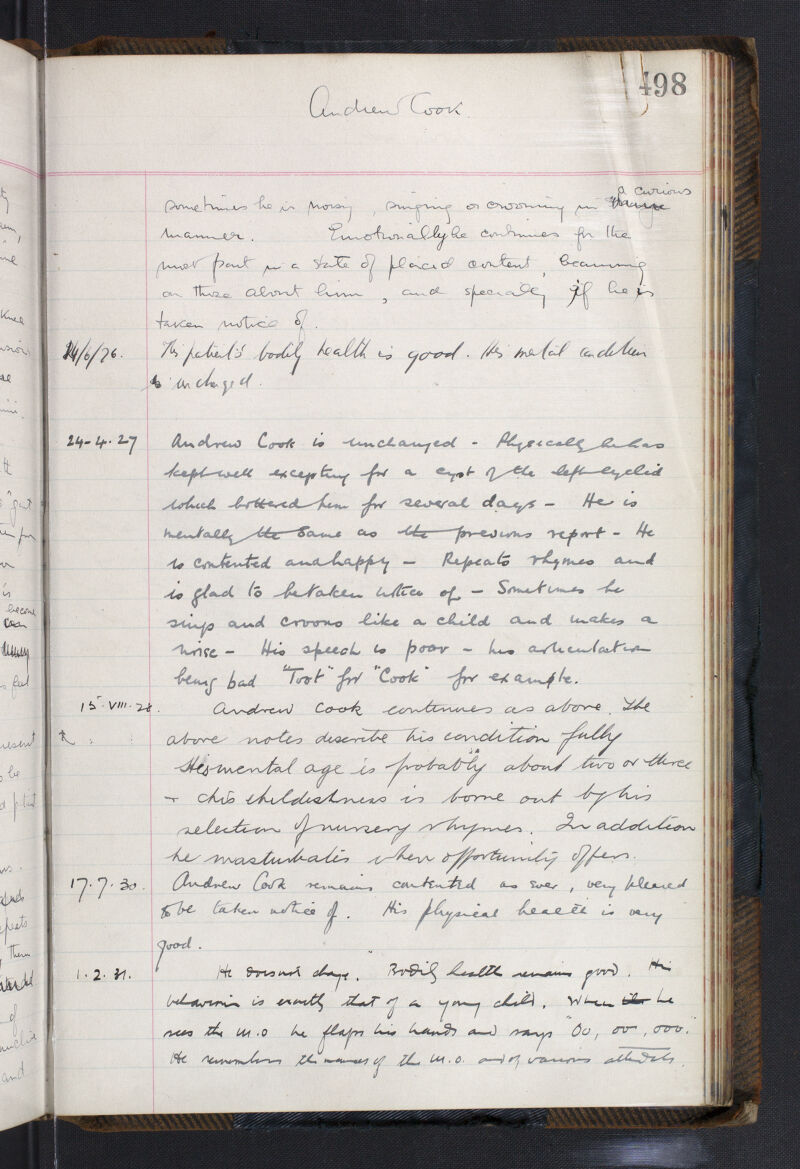 498
Andrew Cook.
a curious
sometimes he is noisy, singing or crooning in
manner. Emotionally he continues for the
most part in a state of placid content, beaming
on those about him, and specially if he is
taken notice of.
14/6/26. This patient's bodily health is good. His mental condition
is unchanged.
24-4-27 Andrew Cook is unchanged - Physically he has
kept well excepting for a cyst of the left eyelid
which bothered him for several days - He is
mentally the same as the previous report - He
is contented and happy - Repeats rhymes and
is glad to be taken notice of - Sometimes he
sings and croons like a child and makes a
noise - His speech is poor - his articulation
being bad "Toot" for "Cook" for example.
15.VIII.28. Andrew Cook continues as above. The
above notes describe his condition fully
His mental age is probably about two or three
+ this childishness is borne out by his
selection of nursery rhymes. In addition
he masturbates when opportunity offers.
17.7.30. Andrew Cook remains contented as ever, very pleased
to be taken notice of. His physical health is very
good.
1.2.31. He doesn't change. Bodily health remains good. His
behaviour is exactly that of a young child. When he
sees the M.O he flaps his hands and says "Oo, oo, ooo."
He remembers the names of the M.O. and of various attendants.